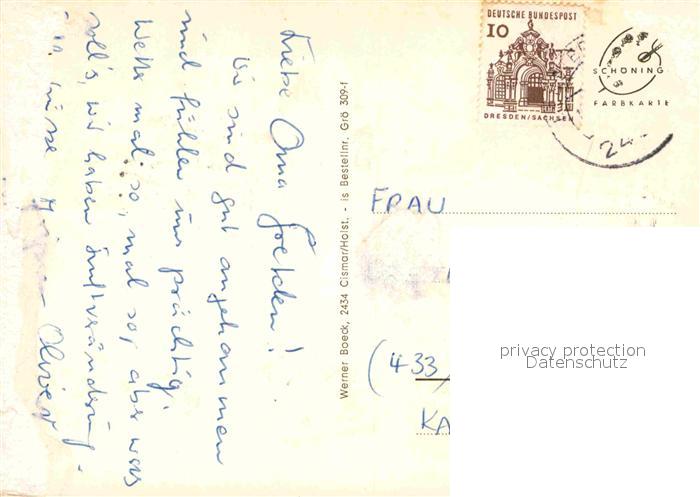 Liebe Oma Goetden!
wir sind gut angekommen
und fühlen uns prächtig.
Wetter mal so, mal so, aber was
soll's, wir haben Luftveränderung!
Grüsse
Oliver
Werner Boeck, 2434 Cismar/Holst. - is Bestellnr. Grö 309-f
DEUTSCHE BUNDESPOST
10
DRESDEN/SACHSEN
SCHÖNING
FARBKARTE
24
FRAU
(433
KA
privacy protection
Datenschutz